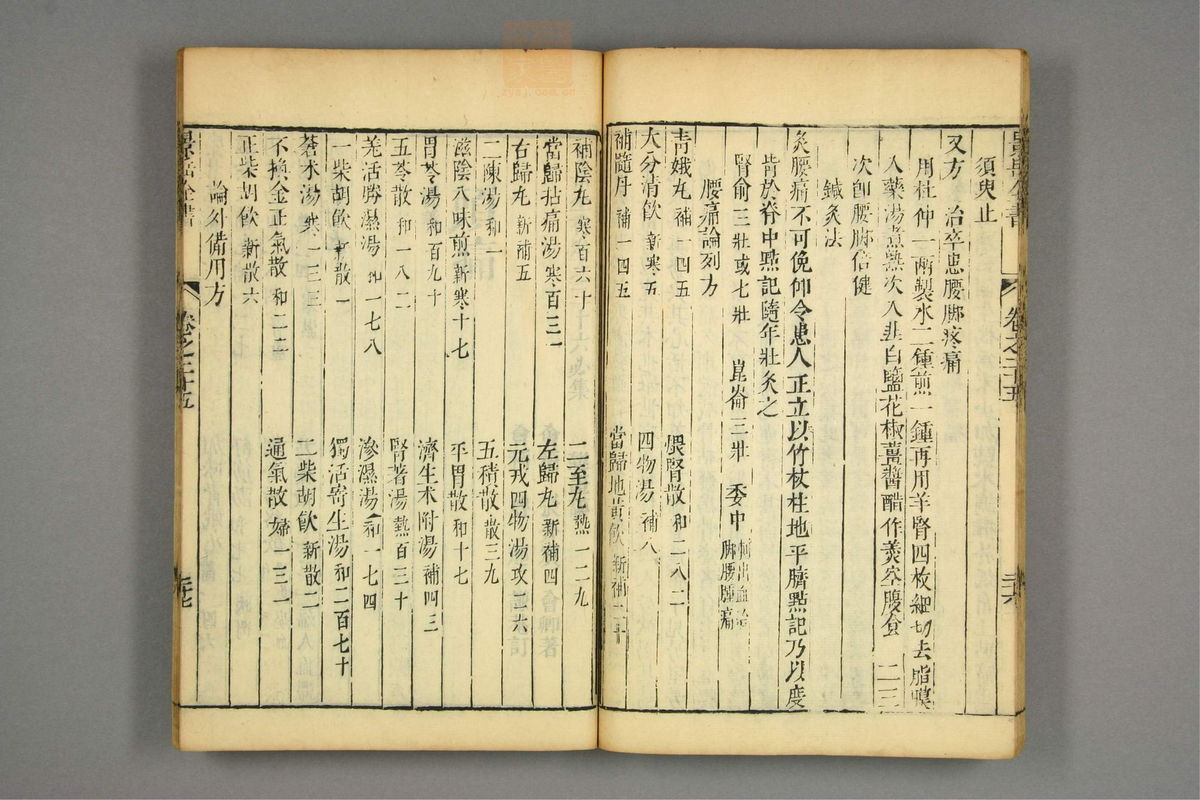 須臾止
又方 治卒患腰脚疼痛
用杜仲一兩製水二鍾煎一鍾再用羊腎四枚細切去脂膜
入藥湯煮熟次入韭白鹽花椒薑醬醋作羹空腹食 二三
次卽腰脚倍健
鍼灸法
灸腰痛不可俛仰令患人正立以竹杖柱地平臍點記乃以度
背於脊中點記隨年壯灸之
腎俞三壯或七壯 崑崙三壯 委中 刺出血治脚腰腫痛
腰痛論列方
青娥丸 補一四五 煨腎散 和二八二
大分清飲 新寒五 四物湯 補八
補髓丹 補一四五 當歸地黃飲 新補二十
景岳全書 卷之二十五 三六
補陰丸 寒百六十 二至丸 熱一二九
當歸拈痛湯 寒百三 左歸丸 新補四
右歸丸 新補五 元戎四物湯 攻
二陳湯 和一 五積散 散三九
滋陰八味煎 新寒十七 平胃散 和十七
胃苓湯 和百九十 濟生术附湯 補四三
五苓散 和一八二 腎著湯 熱百三十
羌活勝濕湯 和一七八 滲濕湯 和一七四
一柴胡飲 新散一 獨活寄生湯 和二百七十
蒼术湯 二柴胡飲 新散二
不換金正氣散 和二 通氣散 婦一三
正柴胡飲 新散六
論外備用方
景岳全書 卷之二十五 三七